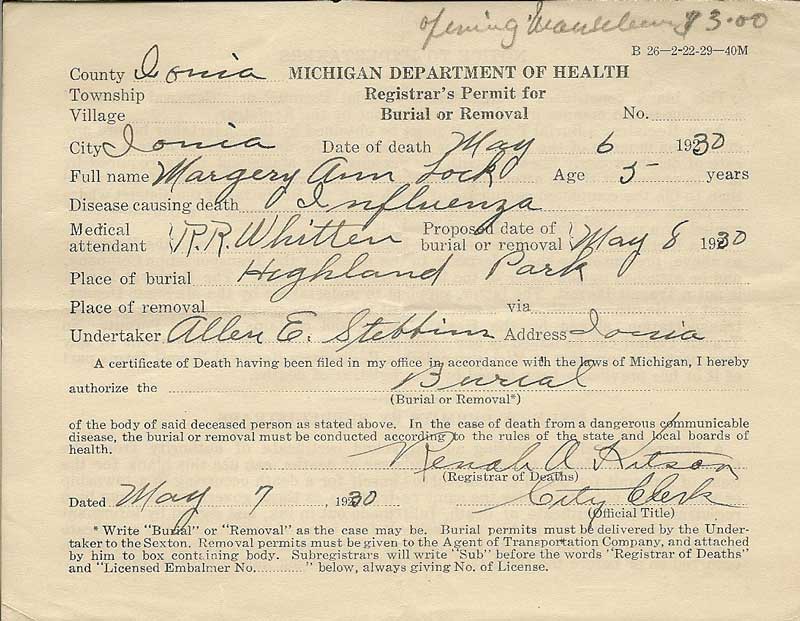 opening Mausoleum $3.00
B 26—2-22-29—40M
County Ionia MICHIGAN DEPARTMENT OF HEALTH
Township Registrar's Permit for
Village Burial or Removal No.
City Ionia Date of death May 6 1930
Full name Margery Ann Lock Age 5 years
Disease causing death Influenza
Medical attendant R.R. Whitten Proposed date of burial or removal May 8 1930
Place of burial Highland Park
Place of removal via
Undertaker Allen E. Stebbins Address Ionia
A certificate of Death having been filed in my office in accordance with the laws of Michigan, I hereby
authorize the Burial
(Burial or Removal*)
of the body of said deceased person as stated above. In the case of death from a dangerous communicable
disease, the burial or removal must be conducted according to the rules of the state and local boards of
health.
A Kitson
(Registrar of Deaths)
Dated May 7 1930 City Clerk
(Official Title)
* Write "Burial" or "Removal" as the case may be. Burial permits must be delivered by the Under-
taker to the Sexton. Removal permits must be given to the Agent of Transportation Company, and attached
by him to box containing body. Subregistrars will write "Sub" before the words "Registrar of Deaths"
and "Licensed Embalmer No............ " below, always giving No. of License.